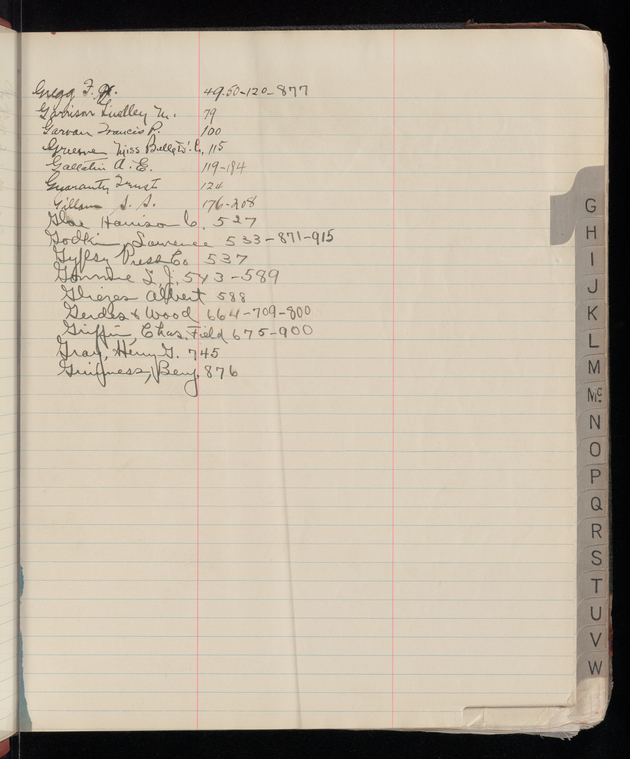 Gregg F. 49-50-120-877
Garrison Lindley M. 79
Garvan Francis P. 100
Gruesne Miss Belle W. C. 115
Gallatin A. E. 119-194
Guaranty Trust 124
S. S. 176-208
Harrison C. 527
Godkin, Lawrence 533-871-915
Gypsy Press Co 537
L. J. 543-589
Gleizes Albert 588
Gerdes & Wood 664-709-800
Griffin, Chas. Field 675-900
Gray, Henry G. 745
Guinness, Benj. 876
G
H
I
J
K
L
M
Mc
N
O
P
Q
R
S
T
U
V
W